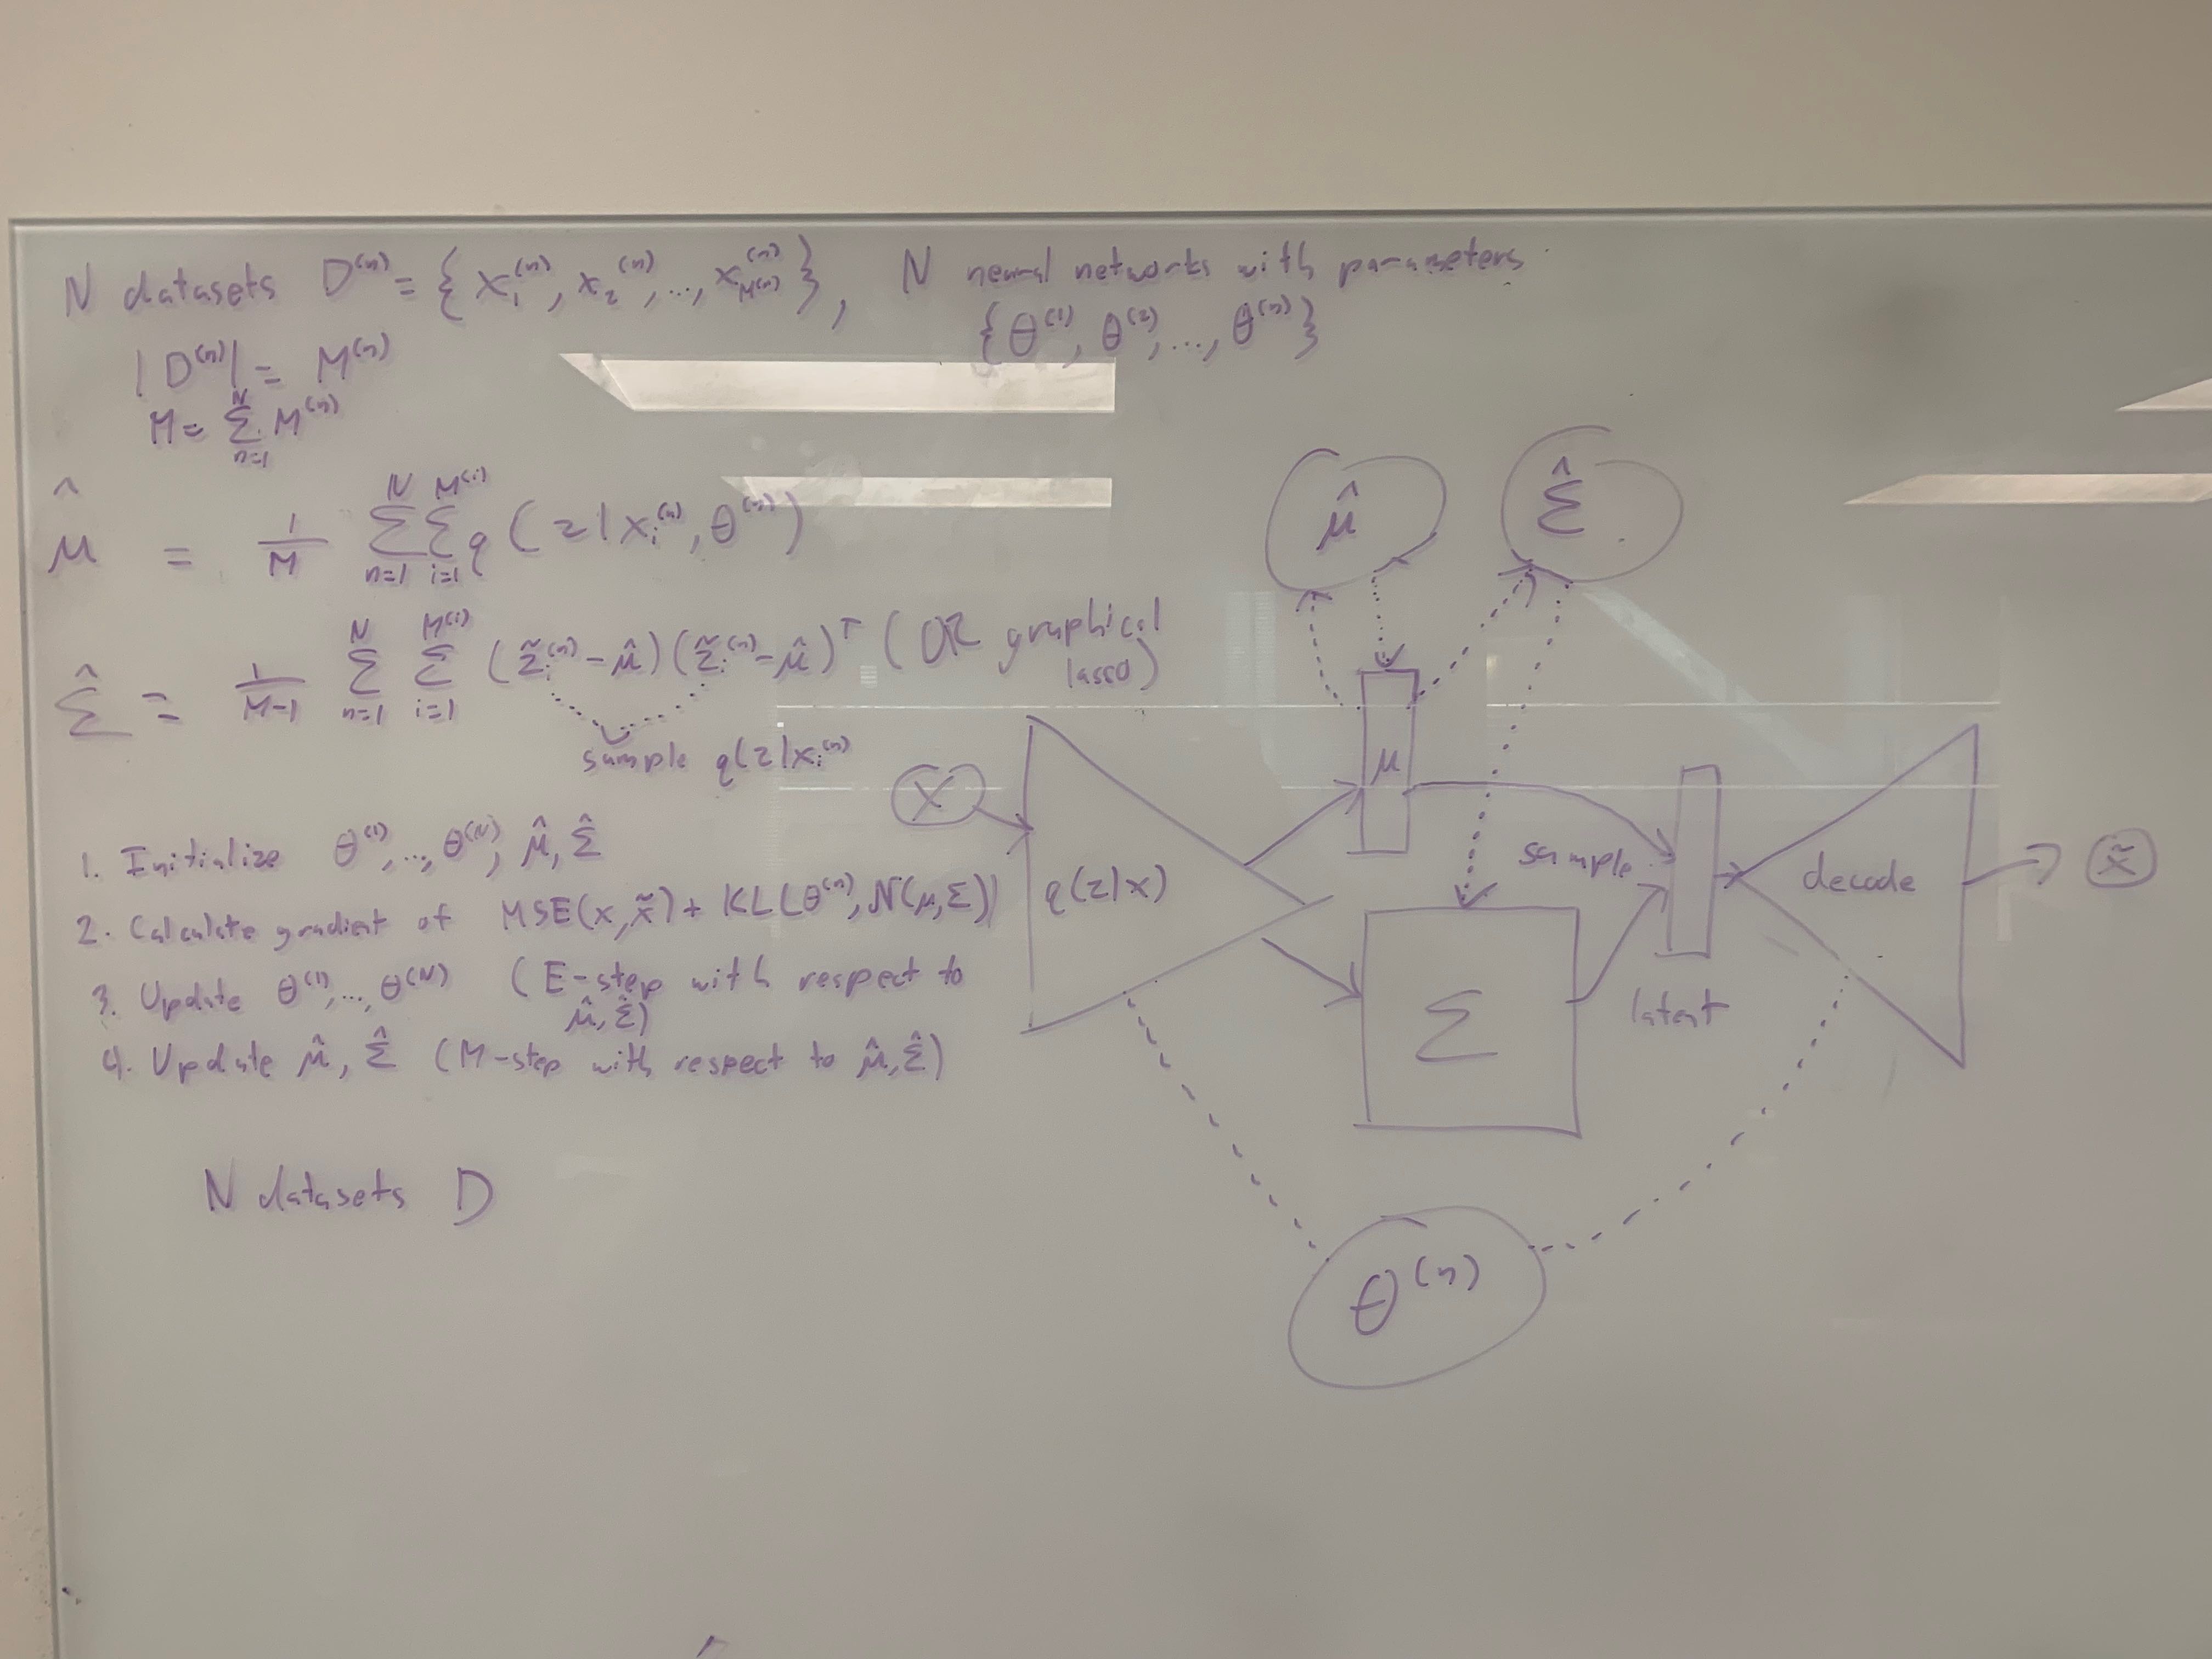 N datasets D⁽ⁿ⁾ = { x₁⁽ⁿ⁾, x₂⁽ⁿ⁾, ..., x_M⁽ⁿ⁾⁽ⁿ⁾ }, N neural networks with parameters
{ θ⁽¹⁾, θ⁽²⁾, ..., θ⁽ⁿ⁾ }
| D⁽ⁿ⁾ | = M⁽ⁿ⁾
M = Σ_{n=1}^{N} M⁽ⁿ⁾
μ̂ = 1/M Σ_{n=1}^{N} Σ_{i=1}^{M⁽ⁱ⁾} q ( z | xᵢ⁽ⁿ⁾, θ⁽ⁿ⁾ )
Σ̂ = 1/(M-1) Σ_{n=1}^{N} Σ_{i=1}^{M⁽ⁱ⁾} ( z̃ᵢ⁽ⁿ⁾ - μ̂ ) ( z̃ᵢ⁽ⁿ⁾ - μ̂ )ᵀ ( OR graphical
lasso )
sample q(z|xᵢ⁽ⁿ⁾
1. Initialize θ⁽¹⁾, ..., θ⁽ᴺ⁾, μ̂, Σ̂
2. Calculate gradient of MSE(x, x̃) + KL(θ⁽ⁿ⁾, N(μ, Σ))
3. Update θ⁽¹⁾, ..., θ⁽ᴺ⁾ ( E-step with respect to
μ̂, Σ̂ )
4. Update μ̂, Σ̂ ( M-step with respect to μ̂, Σ̂ )
N datasets D
μ̂
Σ̂
x
q(z|x)
μ
Σ
sample
latent
decode
x̃
θ⁽ⁿ⁾